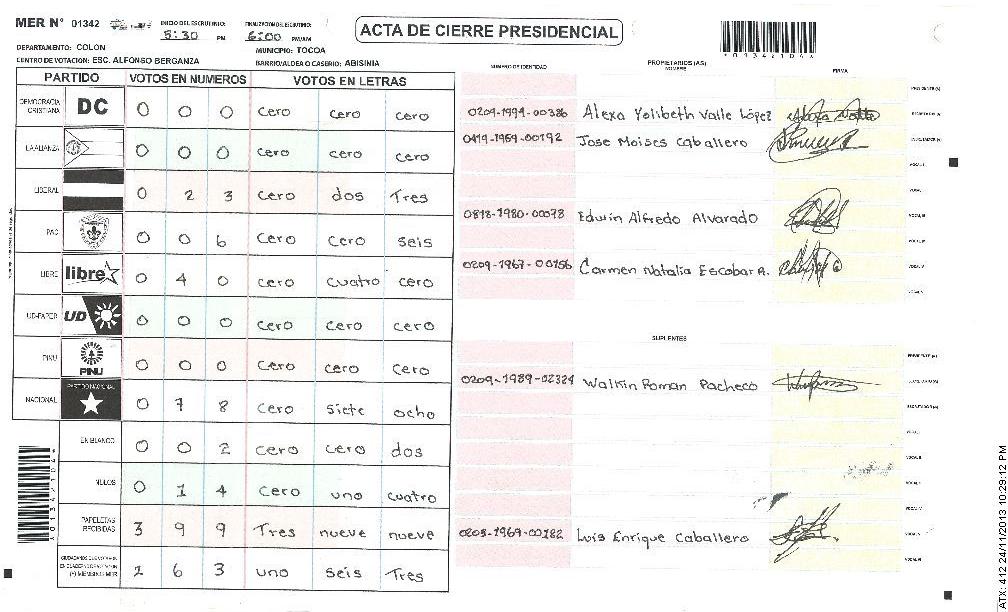 MER N° 01342
INICIO DEL ESCRUTINIO: 5:30 PM
FINALIZACION DEL ESCRUTINIO: 6:00 PM/AM
ACTA DE CIERRE PRESIDENCIAL
DEPARTAMENTO: COLON
MUNICIPIO: TOCOA
CENTRO DE VOTACION: ESC. ALFONSO BERGANZA
BARRIO/ALDEA O CASERIO: ABISINIA
PARTIDO VOTOS EN NUMEROS VOTOS EN LETRAS
DEMOCRACIA CRISTIANA DC 0 0 0 cero cero cero
LA ALIANZA 0 0 0 cero cero cero
LIBERAL 0 2 3 cero dos Tres
PAC 0 0 6 cero cero seis
LIBRE libre 0 4 0 cero cuatro cero
UD-FAPER UD 0 0 0 cero cero cero
PINU PINU 0 0 0 cero cero cero
NACIONAL PARTIDO NACIONAL 0 7 8 cero siete ocho
EN BLANCO 0 0 2 cero cero dos
NULOS 0 1 4 cero uno cuatro
PAPELETAS RECIBIDAS 3 9 9 Tres nueve nueve
1 6 3 uno seis Tres
NUMERO DE IDENTIDAD
PROPIETARIOS (AS)
NOMBRE
FIRMA
0209-1994-00386 Alexa Yolibeth Valle López
0419-1969-00192 Jose Moises Caballero
0818-1980-00078 Edwin Alfredo Alvarado
0209-1967-00156 Carmen Natalia Escobar A.
SUPLENTES
0209-1989-02324 Walkin Roman Pacheco
0205-1969-00182 Luis Enrique Caballero
ATX: 412 24/11/2013 10:29:12 PM